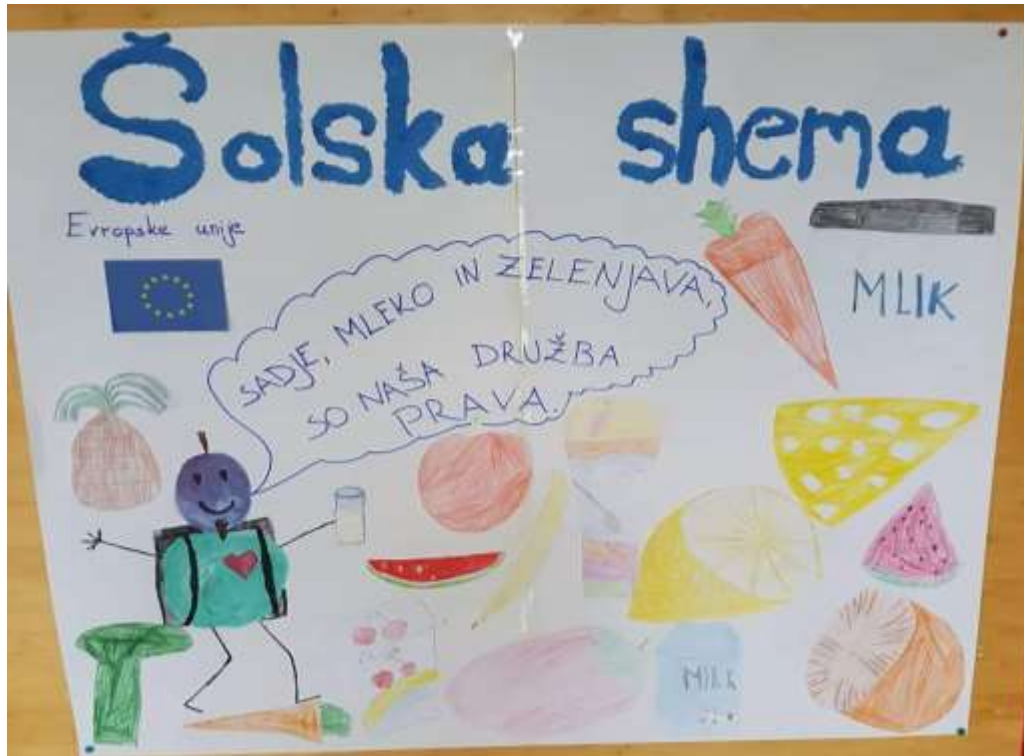 Šolska shema
Evropske unije
SADJE, MLEKO IN ZELENJAVA,
SO NAŠA DRUŽBA
PRAVA.
MLIK
MILK